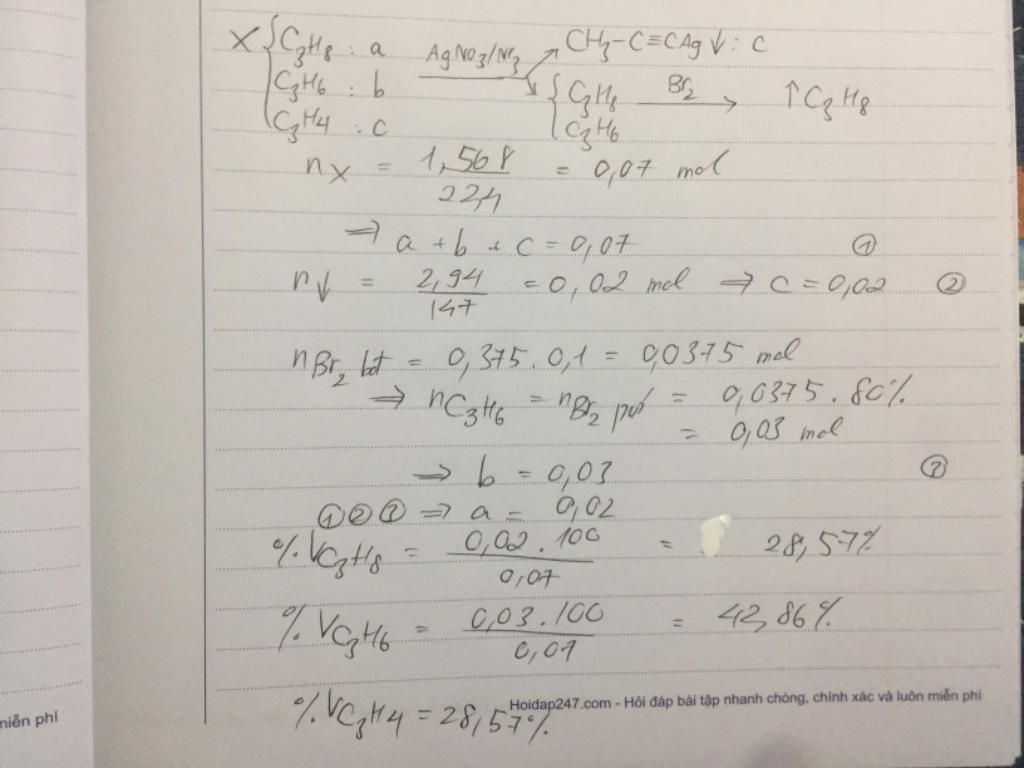 X { C₃H₈ : a AgNO₃/NH₃ → CH₃-C≡CAg↓ : c
C₃H₆ : b { C₃H₈ Br₂ → ↑C₃H₈
C₃H₄ : c C₃H₆
nX = 1,568/22,4 = 0,07 mol
⇒ a + b + c = 0,07 ①
n↓ = 2,94/147 = 0,02 mol ⇒ c = 0,02 ②
nBr₂ bđ = 0,375.0,1 = 0,0375 mol
⇒ nC₃H₆ = nBr₂ pứ = 0,0375.80%
= 0,03 mol
⇒ b = 0,03 ③
①②③ ⇒ a = 0,02
%VC₃H₈ = 0,02.100/0,07 = 28,57%
%VC₃H₆ = 0,03.100/0,07 = 42,86%
%VC₃H₄ = 28,57%
Hoidap247.com - Hỏi đáp bài tập nhanh chóng, chính xác và luôn miễn phí
miễn phí